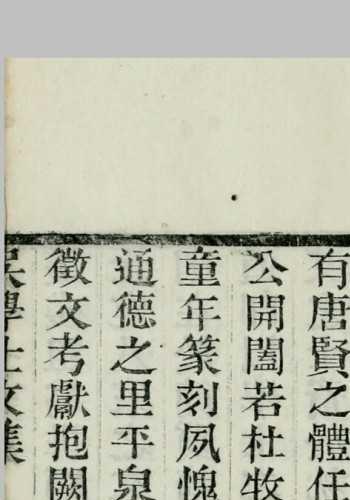 有唐賢之體任
公開闔若杜牧
童年篆刻夙愧
通德之里平泉
徵文考獻抱闕
吳學士文集